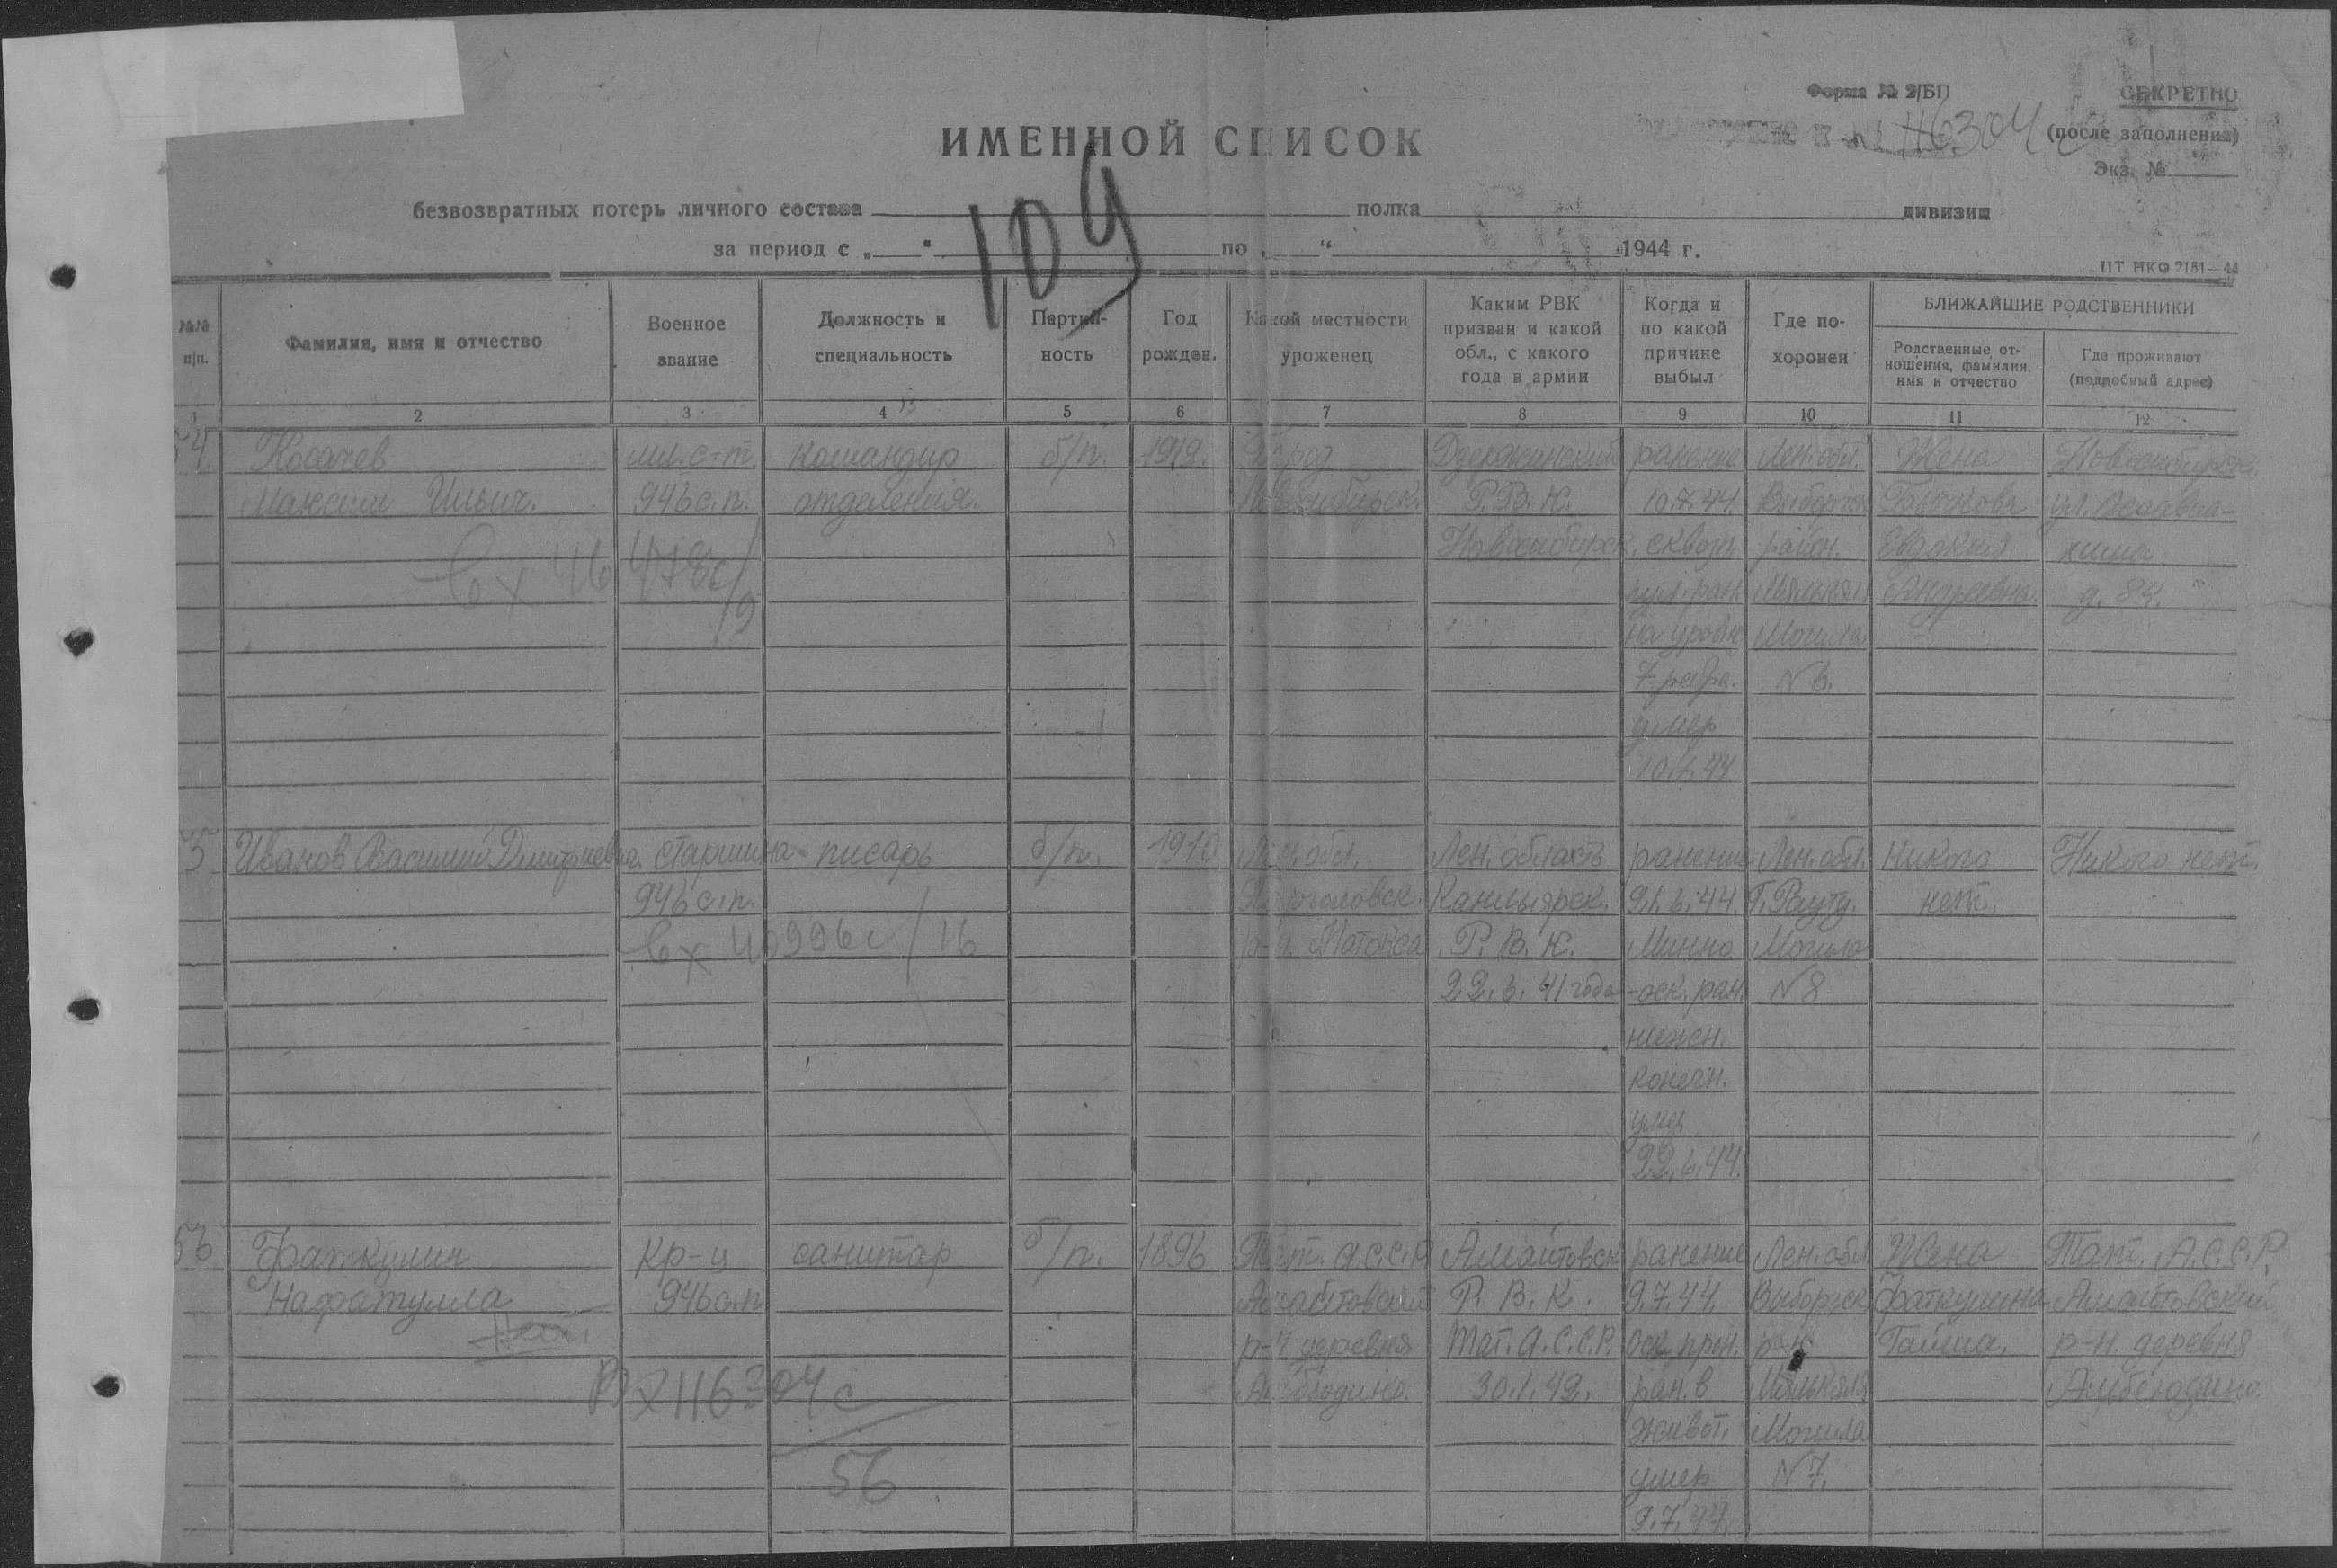 Форма № 2/БП
СЕКРЕТНО
46304с
(после заполнения)
Экз. №
ИМЕННОЙ СПИСОК
109
безвозвратных потерь личного состава полка дивизии
за период с „ “ по „ “ 1944 г.
ЦТ НКО 2181—44
№№ п/п.
Фамилия, имя и отчество
Военное звание
Должность и специальность
Партий-ность
Год рожден.
Какой местности уроженец
Каким РВК призван и какой обл., с какого года в армии
Когда и по какой причине выбыл
Где по-хоронен
БЛИЖАЙШИЕ РОДСТВЕННИКИ
Родственные от-ношения, фамилия, имя и отчество
Где проживают (подробный адрес)
1 2 3 4 5 6 7 8 9 10 11 12
54 Косачев мл. с-т. командир б/п. 1919. Город Дзержинский ранение Лен. обл. Жена Новосибирск.
Максим Ильич. 946 с.п. отделения. Новосибирск. Р.В.К. 10.7.44. Выборгск Евдокия ул.
Новосибирск. сквозн. район.
вх 46478с/9
пул. ран. Андреевна. д. 84.
на уровне Могила
7 ребра. №6.
умер
10.7.44
5 Иванов Василий Дмитриевич. старшина писарь б/п. 1910 Лен. обл. Лен. область ранение Лен. обл. Никого Никого нет.
946 с.п. Каннельярск. 21.6.44. Рауту. нет.
вх 40996с/16
р-н. Матокса Р.В.К. Минно Могила
22.6.41 года -оск. ран. №8
нижн.
конечн.
умер
22.6.44.
56 Фаткулин кр-ц санитар б/п. 1896 Тат. А.С.С.Р. ранение Лен. обл. Жена Тат. А.С.С.Р.
Нафатулла 946 с.п. Р.В.К. 9.7.44. Выборгск Фаткулина
р-н деревня Тат. А.С.С.Р. оск. прон. р-н Гайша. р-н. деревня
Вх 46304с
56
30.1.42. ран. в
живот. Могила
умер №7.
9.7.44.